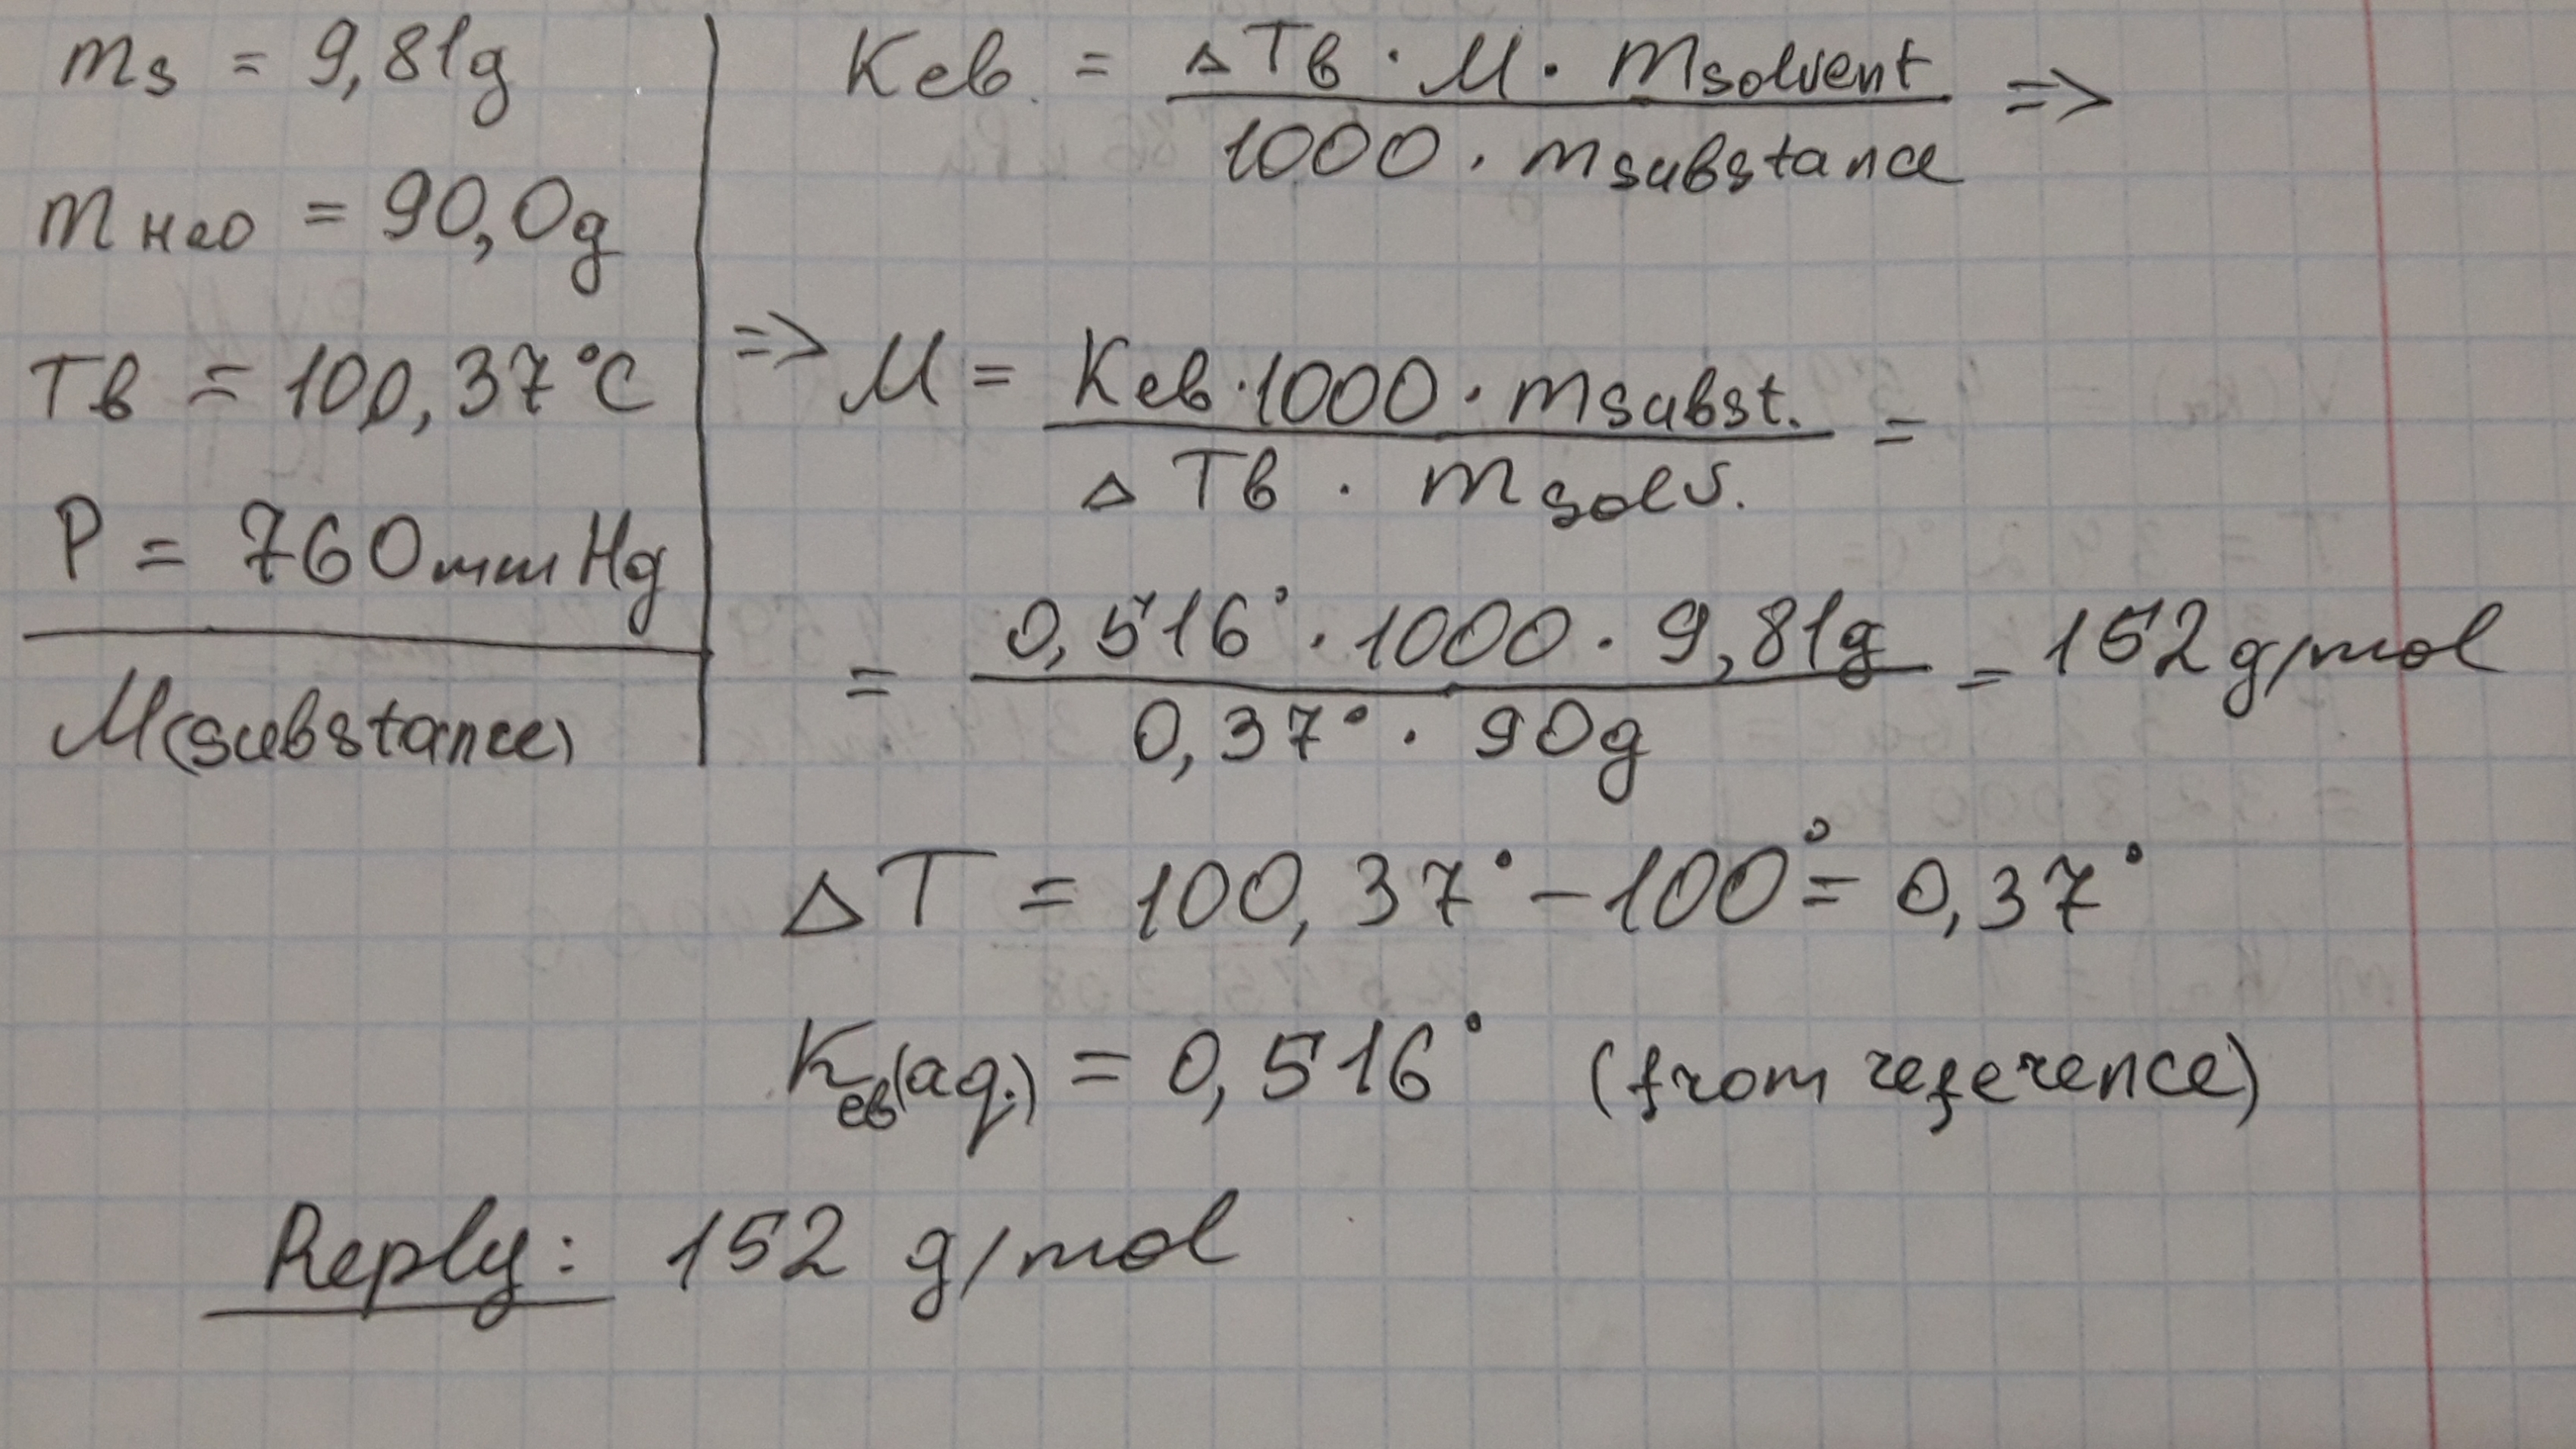 ms = 9,81g
mH2O = 90,0g
Tb = 100,37°C
P = 760mmHg
M(substance)
Keb. = ΔTb · M · msolvent / 1000 · msubstance =>
=> M = Keb · 1000 · msubst. / ΔTb · msolv. =
= 0,516° · 1000 · 9,81g / 0,37° · 90g = 152 g/mol
ΔT = 100,37° – 100° = 0,37°
Keb(aq.) = 0,516° (from reference)
Reply: 152 g/mol